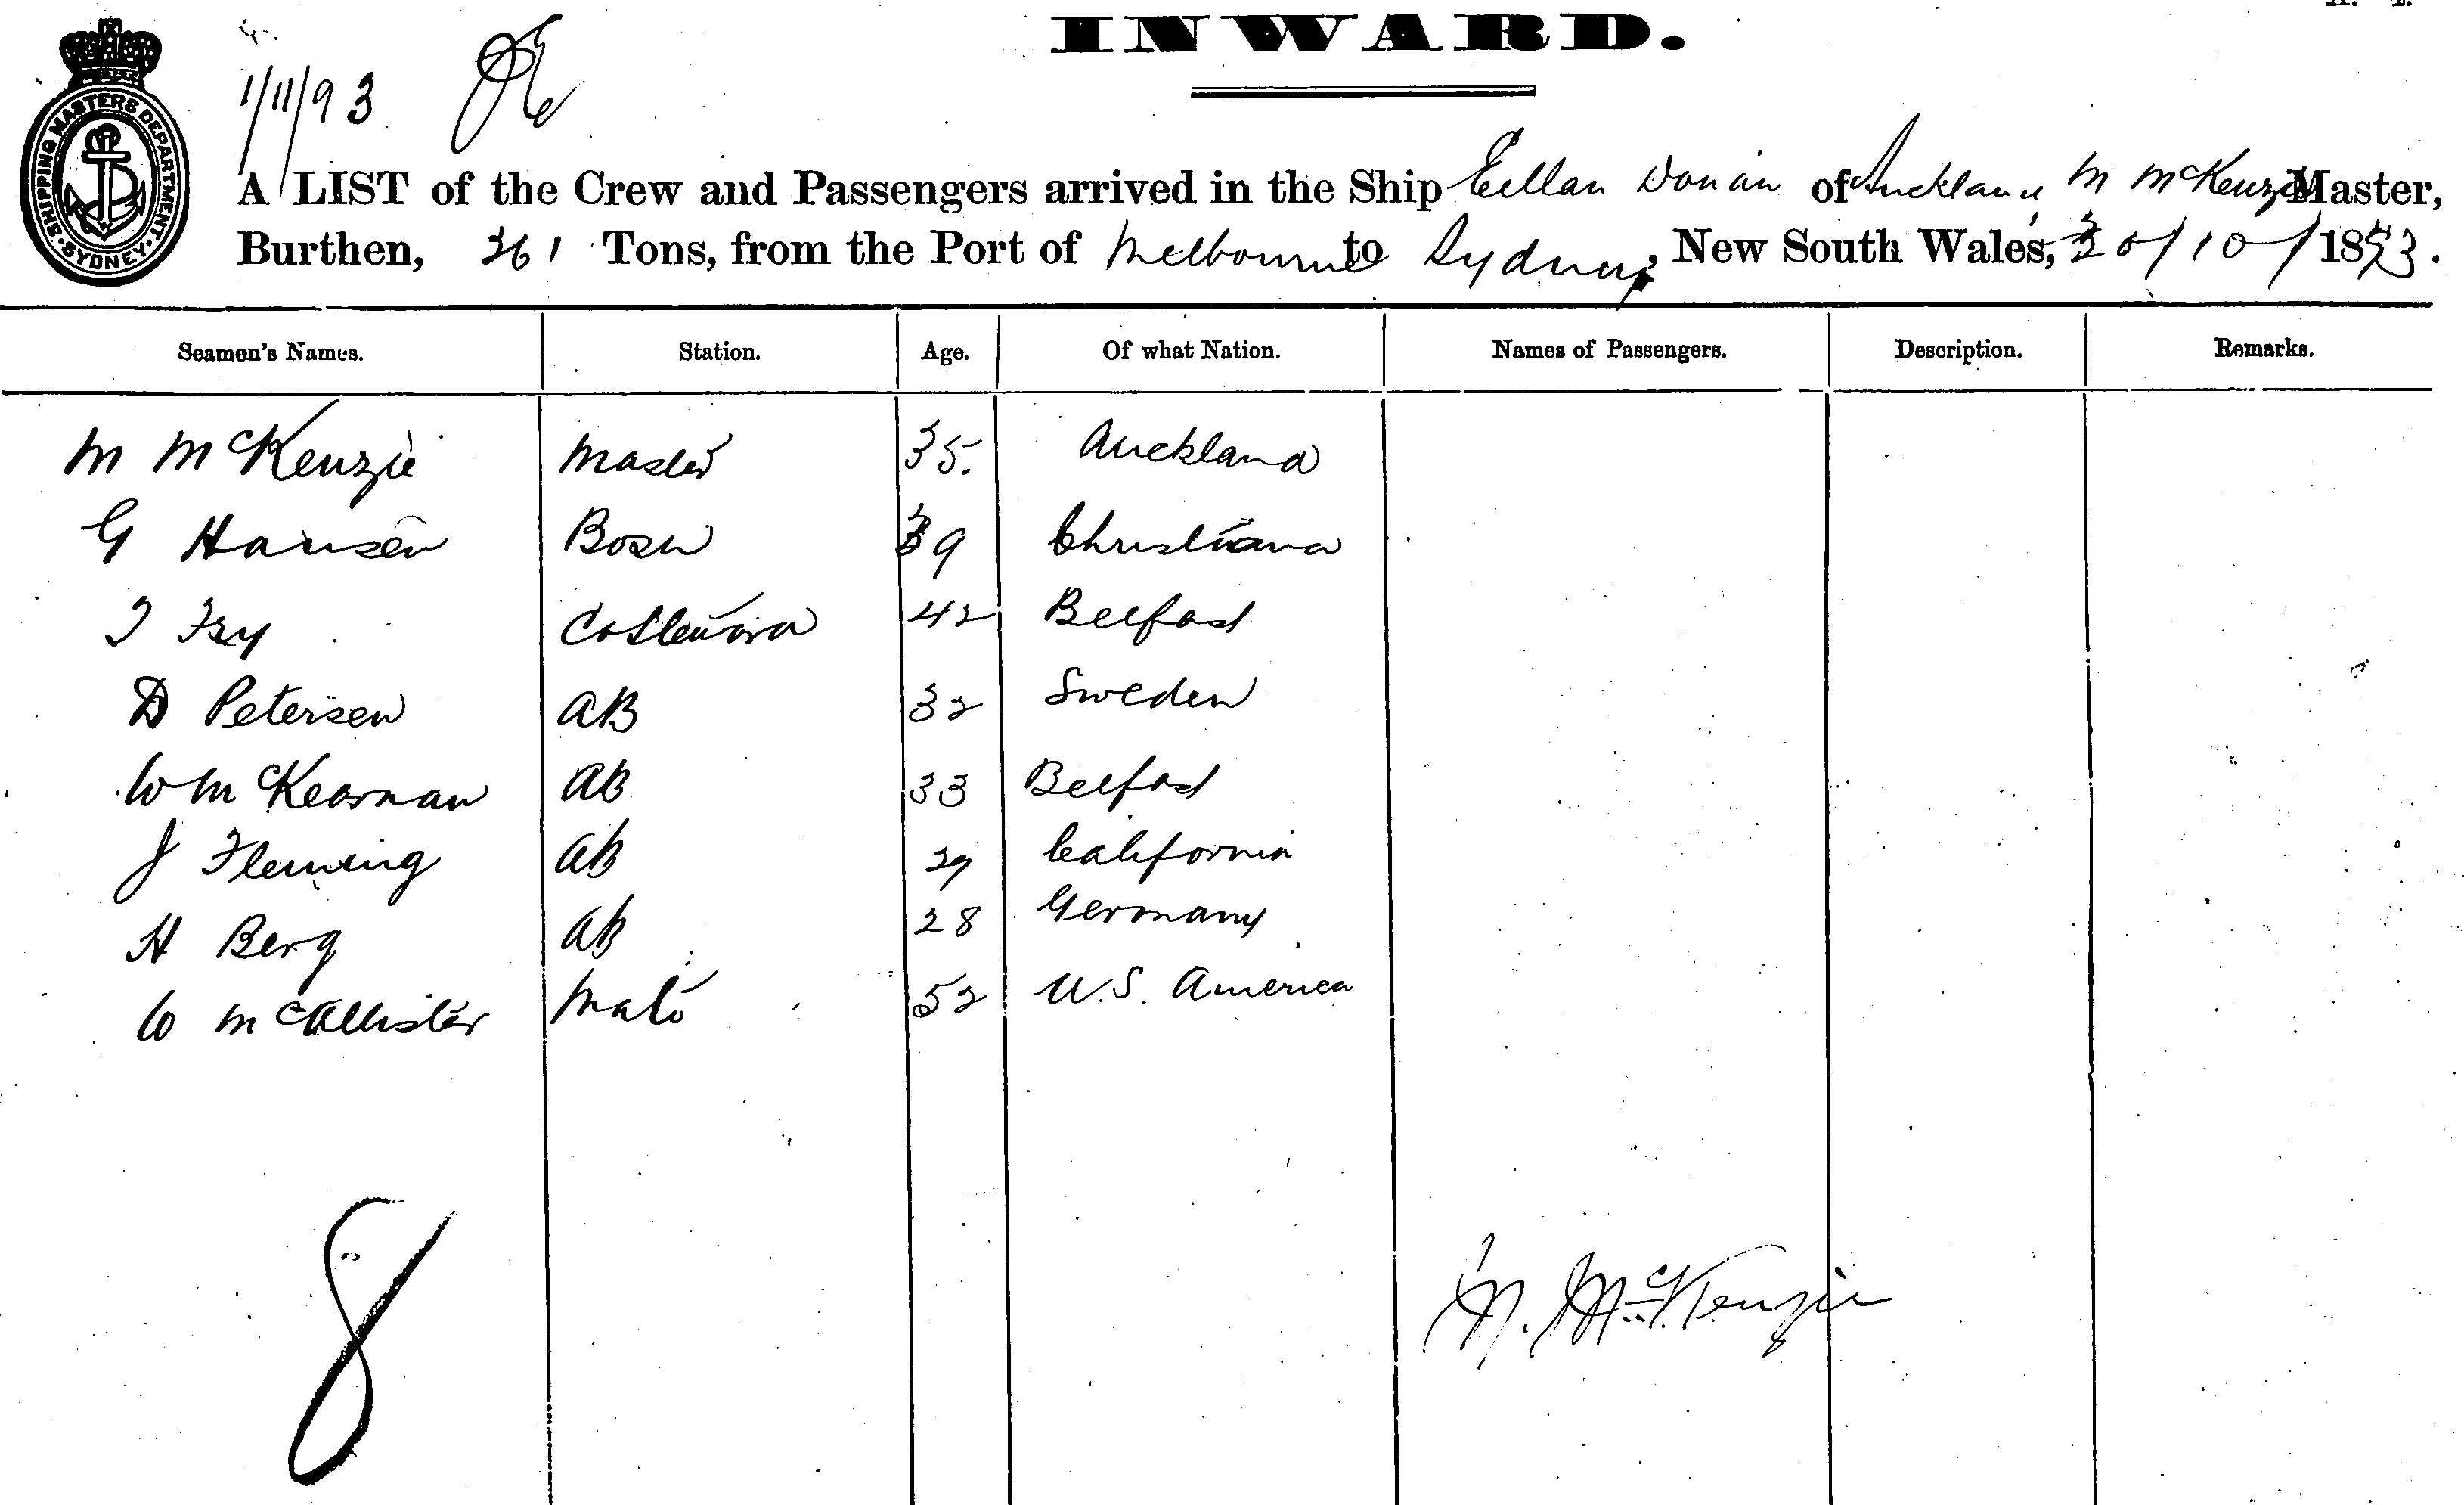 INWARD.
SHIPPING MASTERS DEPARTMENT. SYDNEY.
1/11/93
A LIST of the Crew and Passengers arrived in the Ship Eillan Donan of Auckland, M McKenzie Master,
Burthen, 361 Tons, from the Port of Melbourne to Sydney, New South Wales, 30/10/1893.
Seamen's Names. Station. Age. Of what Nation. Names of Passengers. Description. Remarks.
M McKenzie Master 35. Auckland
G Hansen Bosn 39 Christiana
Fry Co Steward 42 Belfast
D Petersen AB 32 Sweden
W McKearnan AB 33 Belfast
J Fleming AB 29 California
H Berg AB 28 Germany
W McAllister Mate 52 U.S. America
8
M. McKenzie